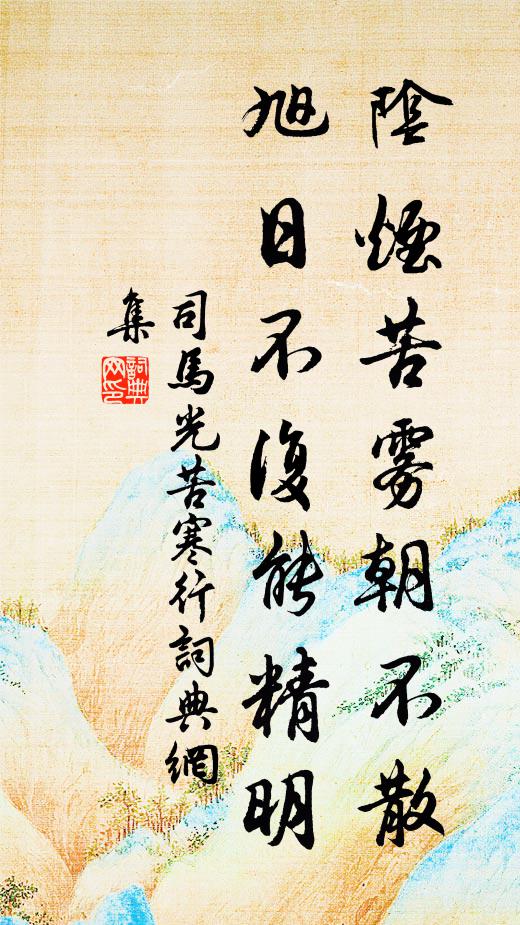 陰煙苦雾朝不散
旭日不復能精明
司馬光苦寒行詞典網
集
詞典
网印